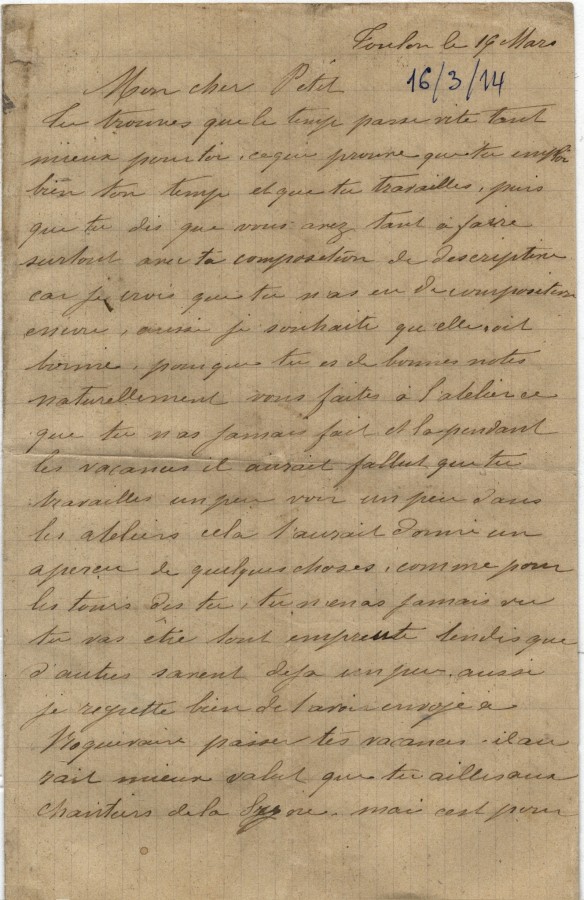 Toulon le 16 Mars
16/3/14
Mon cher Pétit
Tu trouves que le temp passe vite tant
mieux pour toi, ce qui prouve que tu emploi
bien ton temp et que tu travailles, puis
que tu dis que vous avez tant à faire
surtout avec ta composition de descriptive
car je crois que tu n'as eu de composition
encore, aussi je souhaite qu'elle soit
bonne, pour que tu es de bonnes notes
naturellement vous faites à l'atelier ce
que tu n'as jamais fait et la pendant
les vacances il aurait fallut que tu
travailles un peu voir un peu dans
les ateliers cela t'aurait donné un
apercu de quelques choses, comme pour
les tours dis tu, tu n'en as jamais vu
tu vas être tout emprunté tendis que
d'autres savent deja un peu, aussi
je regrette bien de t'avoir envojé a
Roquevaire passer tes vacances. il au
rait mieux valut que tu ailles aux
chantiers de la Seyne. mai c'est pour